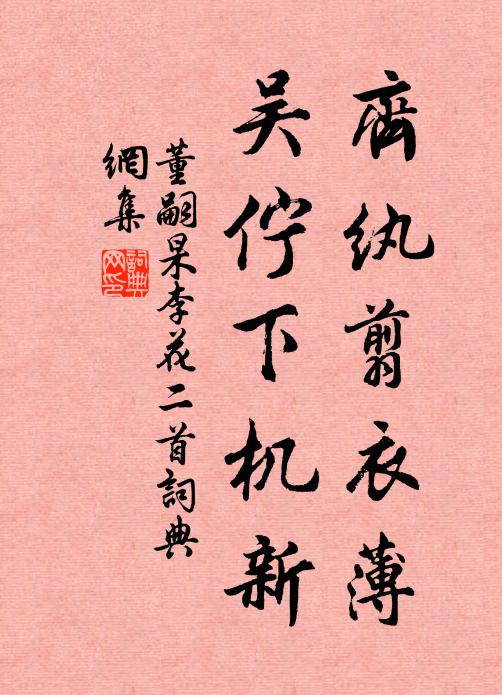 齊纨剪衣薄
吴佇下机新
董嗣杲李花二首詞典
網集
詞典
网印